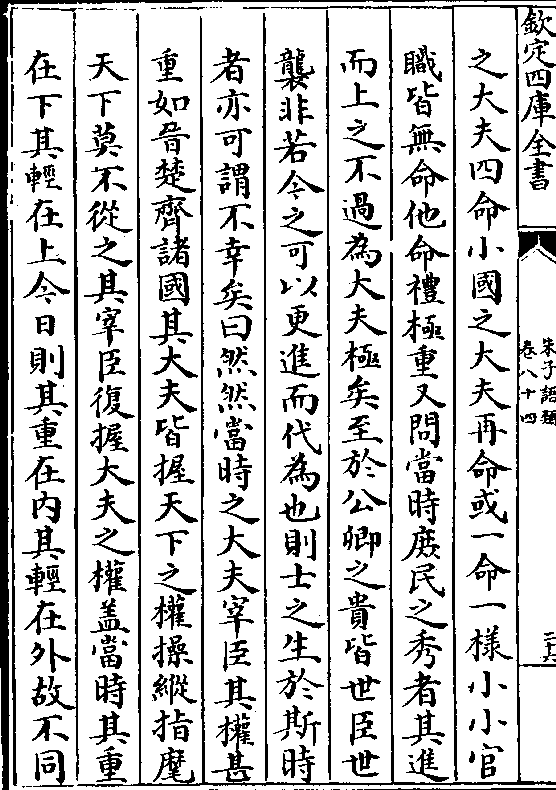 欽定四庫全書
朱子語類
卷八十四
二十六
之大夫四命小國之大夫再命或一命一樣小小官
職皆無命他命禮極重又問當時庶民之秀者其進
而上之不過為大夫極矣至於公卿之貴皆世臣世
襲非若今之可以更進而代為也則士之生於斯時
者亦可謂不幸矣曰然然當時之大夫宰臣其權甚
重如晉楚齊諸國其大夫皆握天下之權操縱指麾
天下莫不從之其宰臣復握大夫之權盖當時其重
在下其輕在上今日則其重在内其輕在外故不同